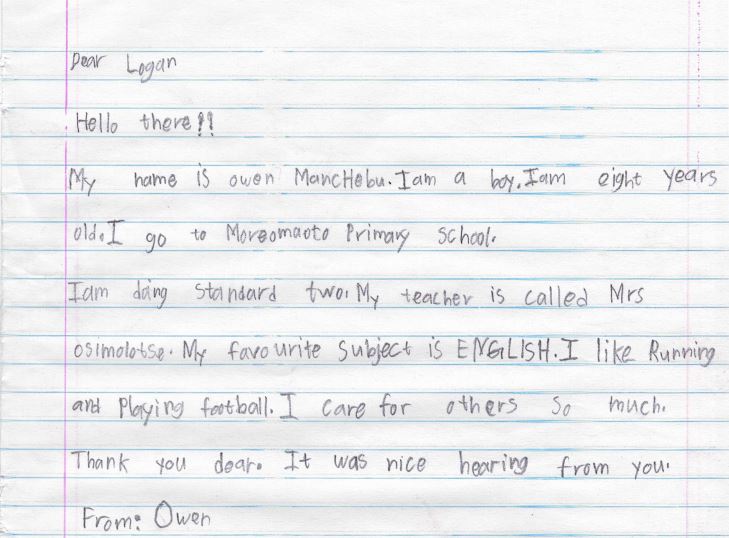 Dear Logan
Hello there!!
My name is owen MancHebu. I am a boy. I am eight years
old. I go to Moreomaoto Primary school.
I am doing standard two. My teacher is called Mrs
osimolotse. My favourite subject is ENGLISH. I like Running
and Playing football. I care for others so much.
Thank you dear. It was nice hearing from you.
From: Owen